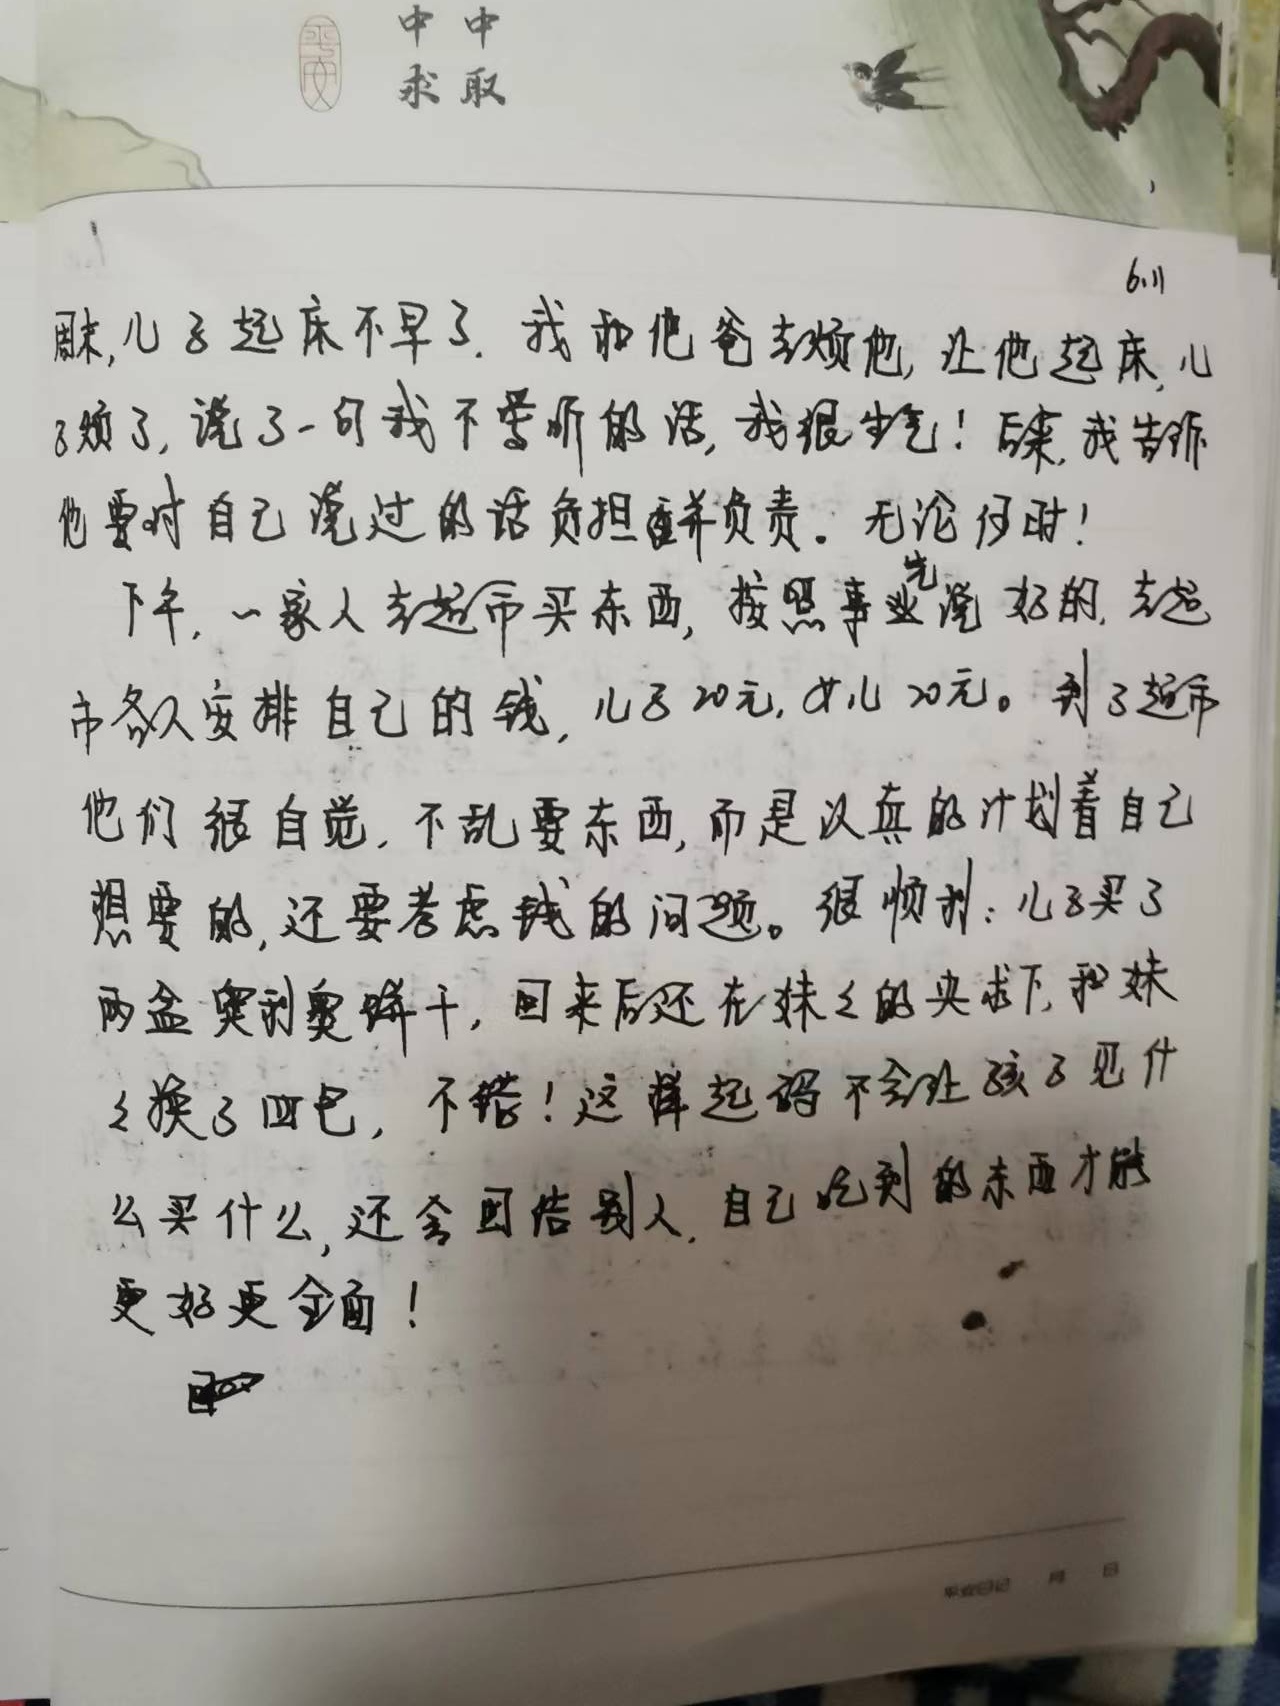 中 中
求 取
平安
6.11
周末,儿子起床不早了.我和他爸去烦他,让他起床,儿
子烦了,说了一句我不爱听的话,我很生气!后来,我告诉
他要对自己说过的话负担并负责。无论何时!
下午,一家人去超市买东西,按照事先说好的,去超
市各人安排自己的钱,儿子20元,女儿20元。到了超市
他们很自觉,不乱要东西,而是认真的计划着自己
想要的,还要考虑钱的问题。很顺利:儿子买了
两盆奥利奥饼干,回来后还在妹々的央求下,和妹
々换了四包,不错!这样起码不会让孩子见什
么买什么,还会回信别人,自己吃到的东西才能
更好更全面!
平安日记 月 日